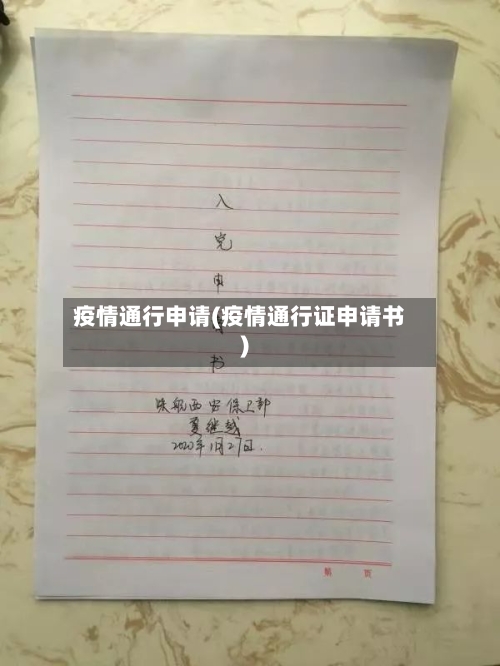 入
党
申
疫情通行申请(疫情通行证申请书
)
书
西安保卫部
夏继越
2020年1月27日.